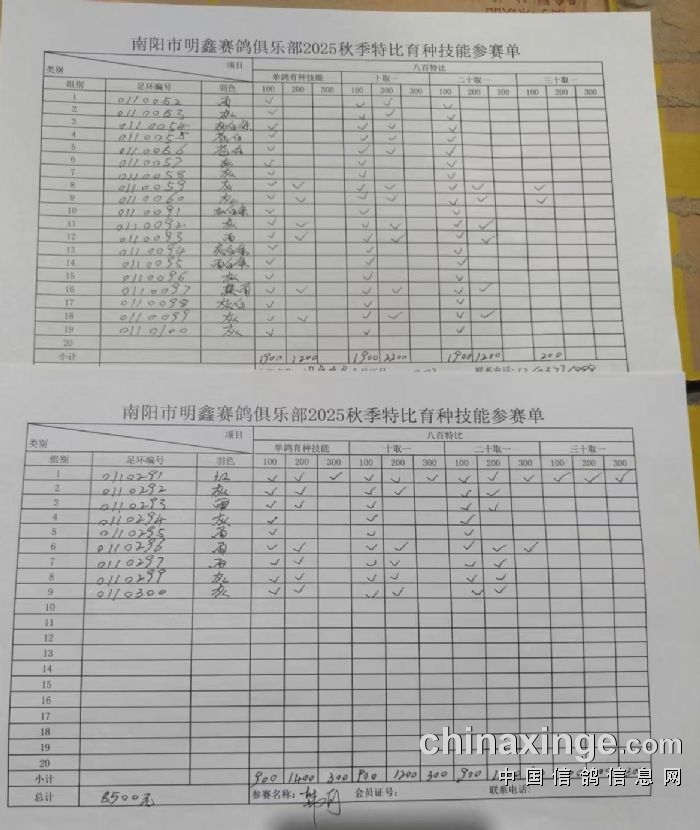 南阳市明鑫赛鸽俱乐部2025秋季特比育种技能参赛单
类别 项目 八百特比
单鸽育种技能 十取一 二十取一 三十取一
组别 足环编号 羽色 100 200 300 100 200 300 100 200 300 100 200 300
1 0110052 雨 ✓ ✓ ✓ ✓
2 0110053 灰 ✓ ✓ ✓ ✓
3 0110054 ✓ ✓ ✓ ✓
4 0110055 ✓ ✓ ✓ ✓
5 0110056 ✓ ✓ ✓ ✓
6 0110057 灰 ✓ ✓ ✓
7 0110058 灰 ✓ ✓ ✓
8 0110059 灰 ✓ ✓ ✓ ✓ ✓ ✓ ✓
9 0110060 灰 ✓ ✓ ✓ ✓ ✓ ✓ ✓
10 0110091 ✓ ✓ ✓
11 0110092 灰 ✓ ✓ ✓ ✓ ✓ ✓
12 0110093 雨 ✓ ✓ ✓ ✓ ✓ ✓
13 0110094 ✓ ✓ ✓
14 0110095 雨白条 ✓ ✓ ✓
15 0110096 灰 ✓ ✓ ✓
16 0110097 ✓ ✓ ✓ ✓ ✓ ✓
17 0110098 灰白 ✓ ✓ ✓
18 0110099 灰 ✓ ✓ ✓ ✓ ✓ ✓
19 0110100 灰 ✓ ✓ ✓
20
小计 1900 1200 1900 2200 1900 1200 200
联系电话:
南阳市明鑫赛鸽俱乐部2025秋季特比育种技能参赛单
类别 项目 八百特比
单鸽育种技能 十取一 二十取一 三十取一
组别 足环编号 羽色 100 200 300 100 200 300 100 200 300 100 200 300
1 0110291 红 ✓ ✓ ✓ ✓ ✓ ✓ ✓ ✓ ✓ ✓ ✓ ✓
2 0110292 灰 ✓ ✓ ✓ ✓ ✓ ✓
3 0110293 雨 ✓ ✓ ✓ ✓ ✓ ✓
4 0110294 灰 ✓ ✓ ✓
5 0110295 雨 ✓ ✓ ✓
6 0110296 雨 ✓ ✓ ✓ ✓ ✓ ✓ ✓
7 0110297 雨 ✓ ✓ ✓ ✓ ✓ ✓
8 0110299 灰 ✓ ✓ ✓ ✓ ✓ ✓
9 0110300 灰 ✓ ✓ ✓ ✓ ✓ ✓
10
11
12
13
14
15
16
17
18
19
20
小计 900 1400 300 900 1200 300 900
总计 8500元 参赛名称: 会员证号: 联系电话:
chinaxinge.com
中国信鸽信息网